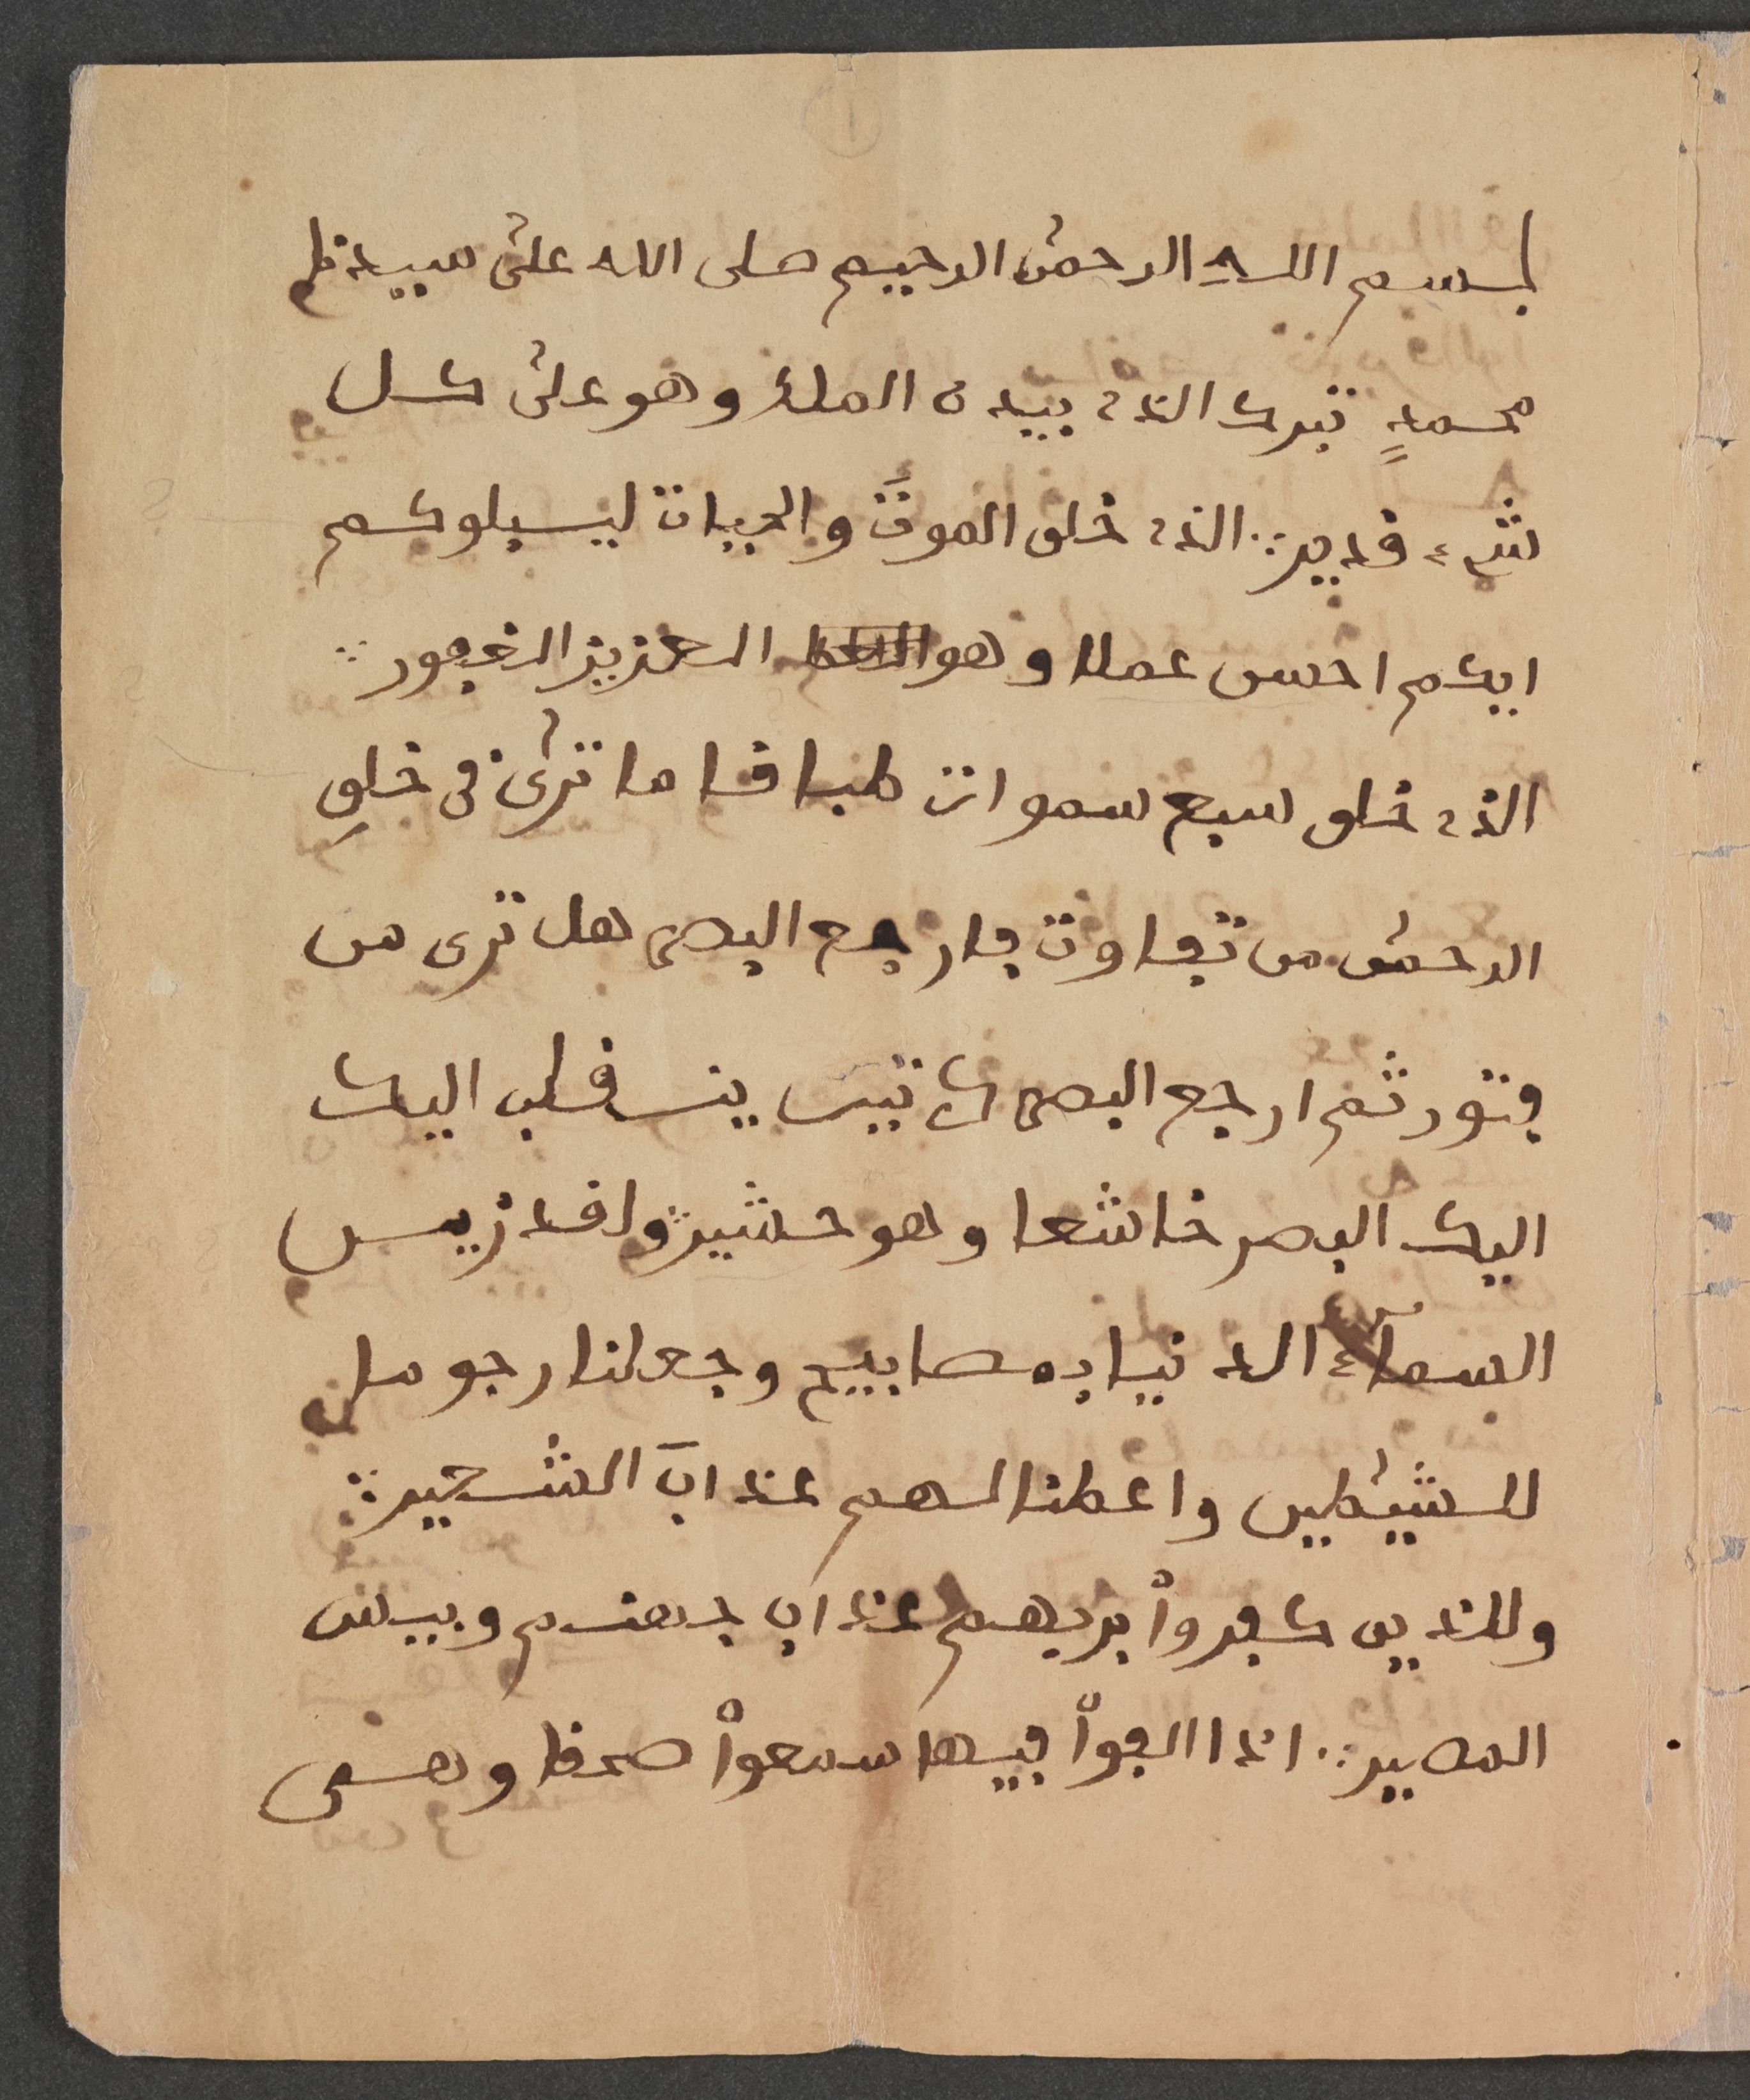 بسم الله الرحمن الرحيم صلى الله على سيدنا
محمدٍ تبرك الذى بيده الملك وهو على كل
شىء قدير الذى خلق الموتَ والحيات ليسبلوكم
ايكم احسن عملا وهو العزيز الغفور
الذى خلق سبع سموات طباقا ما ترى فى خلقِ
الرحمن من تفاوت فارجع البصر هل ترى من
فتور ثم ارجع البصر كاتين ينسقلب اليك
اليك البصر خاشعا وهو حشير ولقد زيس
السمآء الدنيا بمصابيح وجعلنا رجوما
للشيطين واعطنا لهم عذابَ الشعير
وللذين كفرواْ بربهم عذاب جهنم وبيس
المصير اذا القواْ فيها سمعواْ صهقا وهى